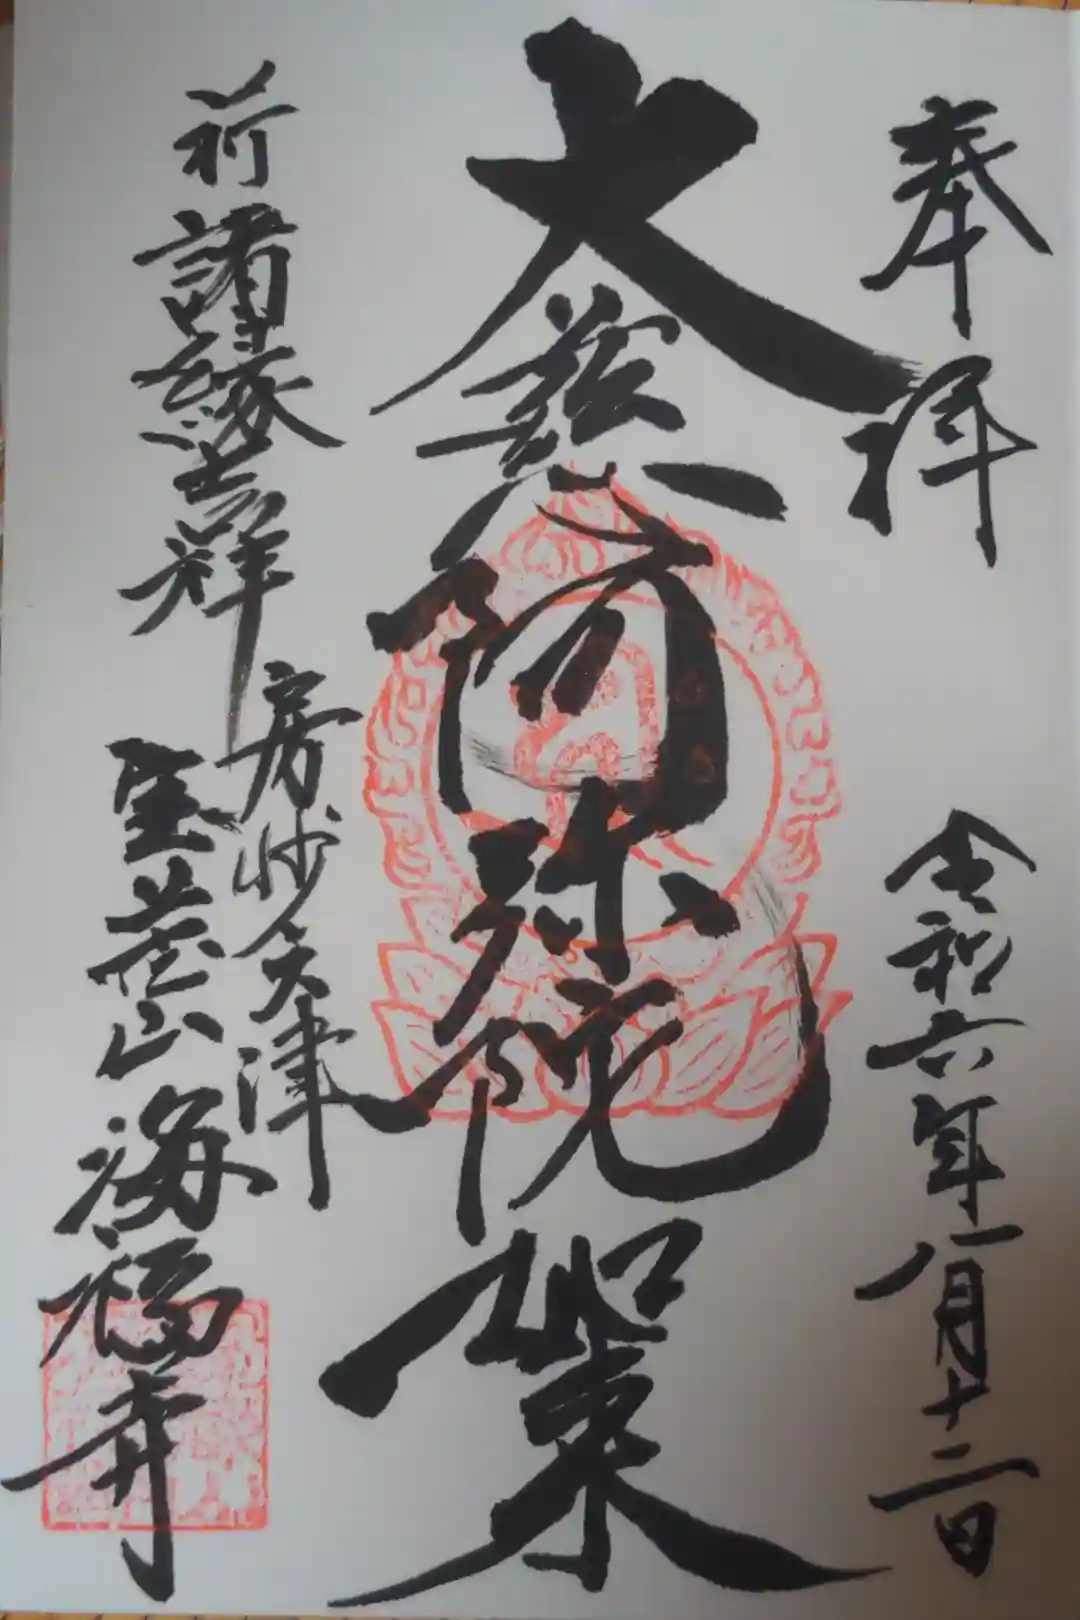 奉拝
令和六年一月十二日
大慈
阿弥陀
如来
祈諸縁吉祥
房州天津
宝荘山海福寺